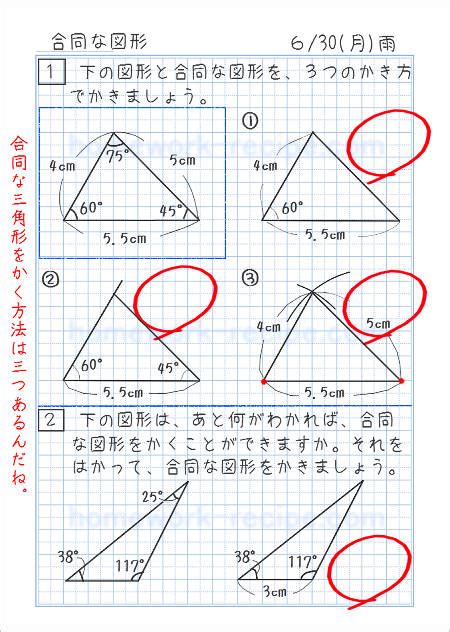 合同な図形 6/30(月)雨
1 下の図形と合同な図形を、3つのかき方
でかきましょう。
4cm 75° 5cm
60° 45°
5.5cm
①
4cm
60°
5.5cm
②
60° 45°
5.5cm
③
4cm 5cm
5.5cm
合同な三角形をかく方法は三つあるんだね。
2 下の図形は、あと何がわかれば、合同
な図形をかくことができますか。それを
はかって、合同な図形をかきましょう。
25°
38° 117°
38° 117°
3cm